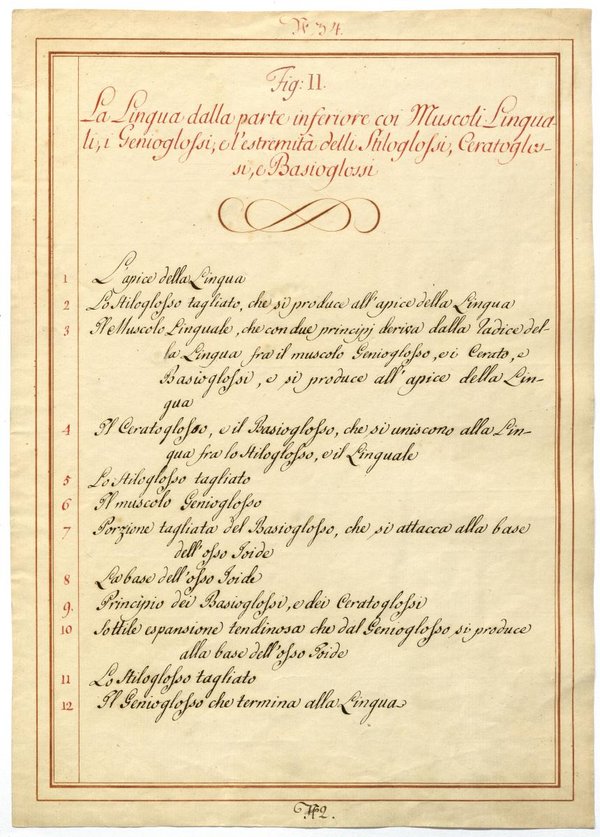 N.° 34.
Fig: II.
La Lingua dalla parte inferiore coi Muscoli Lingua-
li, i Genioglossi, e l'estremità delli Stiloglossi, Ceratoglos-
si, e Basioglossi
1 L'apice della Lingua
2 Lo Stiloglosso tagliato, che si produce all'apice della Lingua
3 Il Muscolo Linguale, che con due principj deriva dalla radice del-
la Lingua fra il muscolo Genioglosso, e i Cerato, e
Basioglossi, e si produce all'apice della Lin-
gua
4 Il Ceratoglosso, e il Basioglosso, che si uniscono alla Lin-
gua fra lo Stiloglosso, e il Linguale
5 Lo Stiloglosso tagliato
6 Il muscolo Genioglosso
7 Porzione tagliata del Basioglosso, che si attacca alla base
dell'osso Ioide
8 La base dell'osso Ioide
9. Principio dei Basioglossi, e dei Ceratoglossi
10 Sottile espansione tendinosa che dal Genioglosso si produce
alla base dell'osso Ioide
11 Lo Stiloglosso tagliato
12 Il Genioglosso che termina alla Lingua